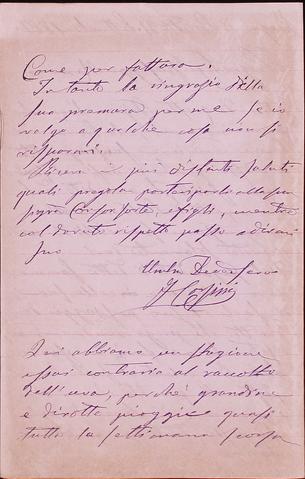 Come per fattura.
Intanto la ringrazio della
sua premura per me se io
valgo a qualche cosa non si
risparmi.
Riceva i più distinti saluti
quali pregola
Consorte, e figli, mentre
col dovuto rispetto passo a dirmi
Suo
Umil Devot Servo
J Corsini
Qui abbiamo un stagione
assai contraria al raccolto
dell'uva, perché grandine
e dirotte pioggie quasi
tutta la settimana scorsa